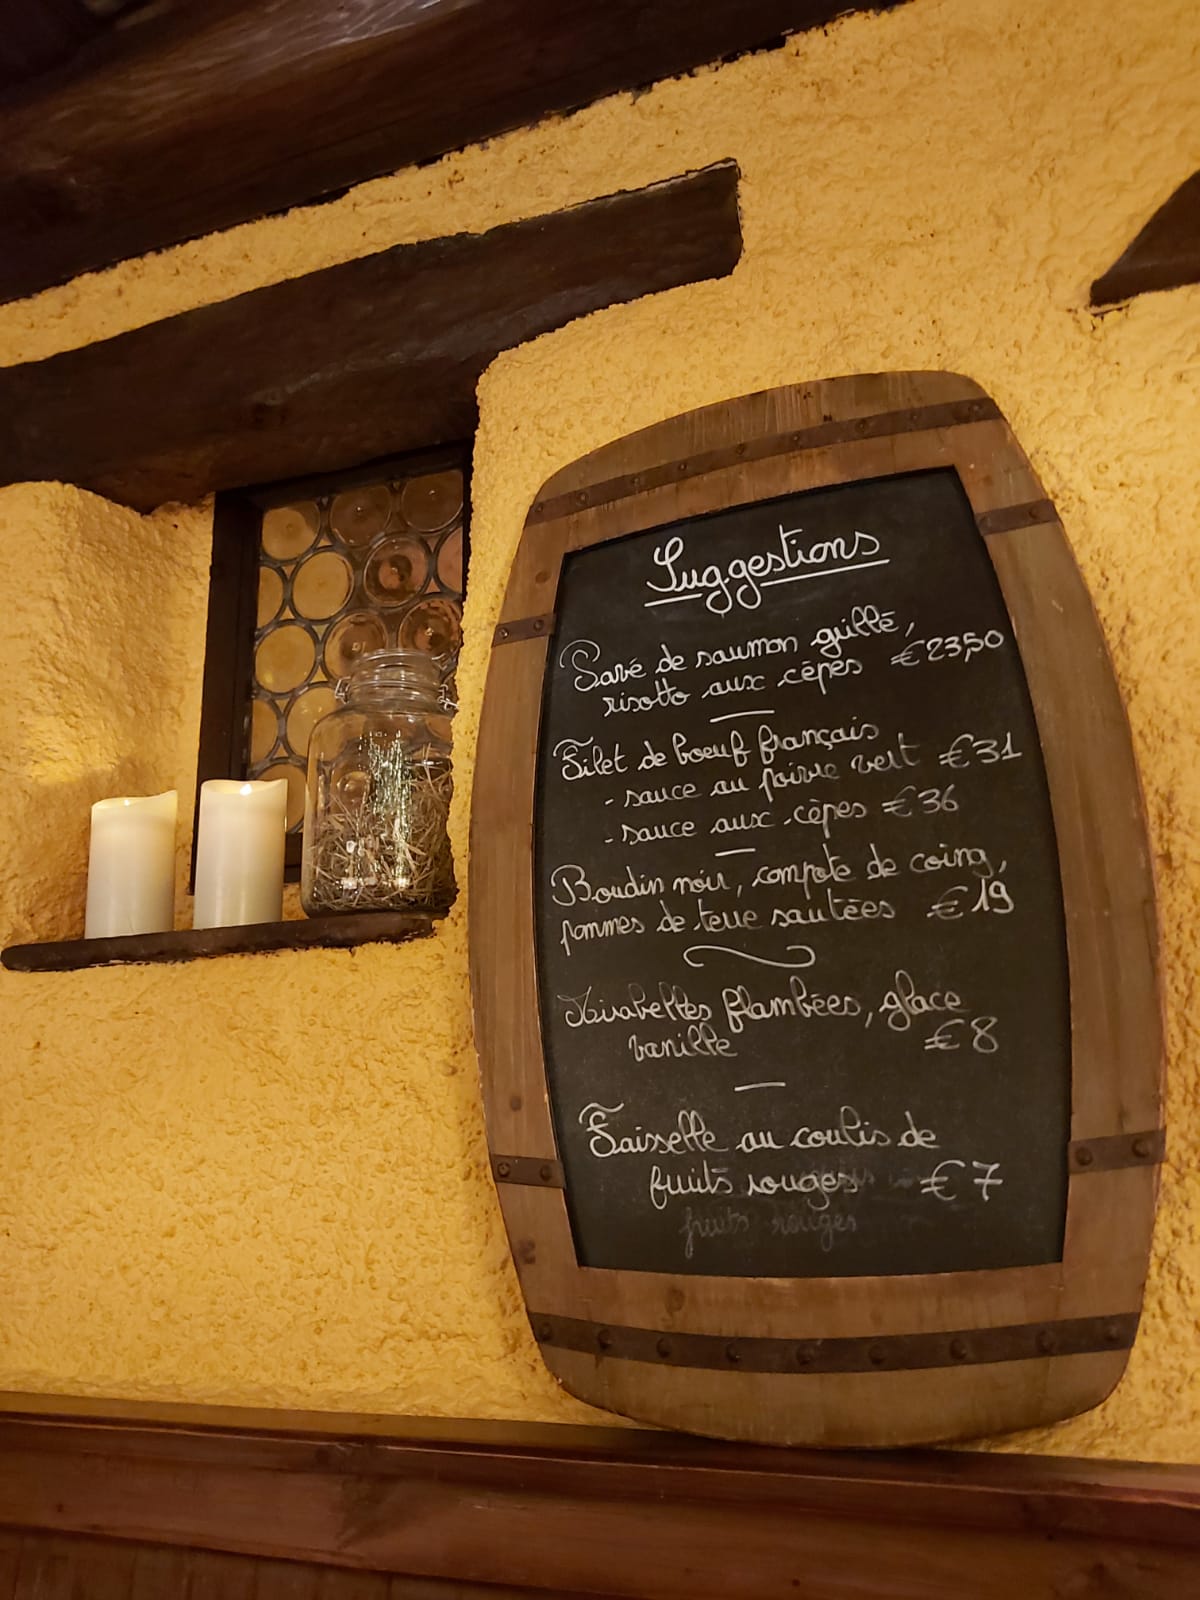 Suggestions
Pavé de saumon grillé,
risotto aux cèpes €23,50
Filet de boeuf français
- sauce au poivre vert €31
- sauce aux cèpes €36
Boudin noir, compote de coing,
pommes de terre sautées €19
Mirabelles flambées, glace
vanille €8
Faisselle au coulis de
fruits rouges €7
fruits rouges